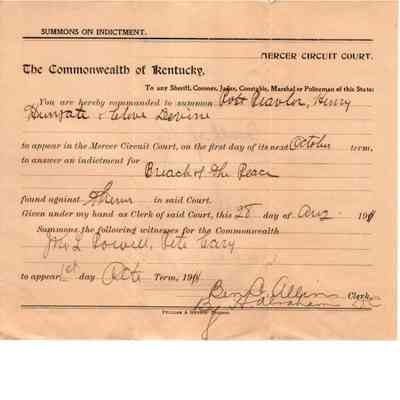 SUMMONS ON INDICTMENT.
MERCER CIRCUIT COURT.
The Commonwealth of Kentucky,
To any Sheriff, Coroner, Jailer, Constable, Marshal or Policeman of this State:
You are hereby commanded to summon Henry
Hungate & Clove Devine
to appear in the Mercer Circuit Court, on the first day of its next October term,
to answer an indictment for
Breach of the Peace
found against Them in said Court.
Given under my hand as Clerk of said Court, this 28 day of Aug. 191
Summons the following witnesses for the Commonwealth
Jno L Powell, Pete Gary
to appear 1st day Octo Term, 191
Ben C. Allin Clerk.
By DC